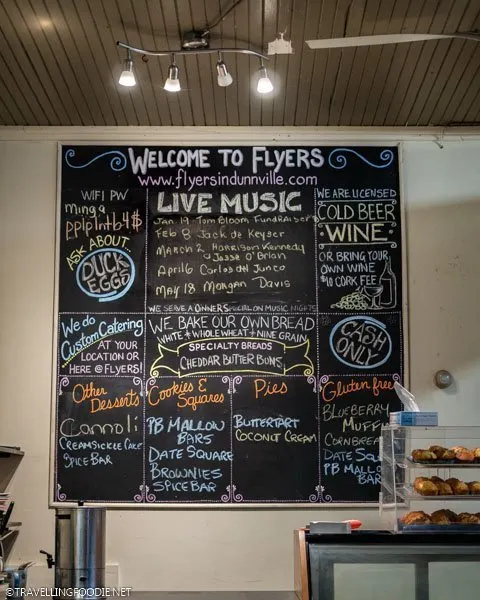 WELCOME TO FLYERS
www.flyersindunnville.com
WIFI PW
ASK ABOUT
DUCK
EGGS
LIVE MUSIC
Jan 19 Tom Bloom Fundraiser
Feb 8 Jack de Keyser
March 2 Harrison Kennedy
Jesse O'Brian
April 6 Carlos del Junco
May 18 Morgan Davis
WE SERVE A OWNERS SPECIAL ON MUSIC NIGHTS
WE ARE LICENSED
COLD BEER
WINE
OR BRING YOUR
OWN WINE
$10 CORK FEE
We do
Custom Catering
AT YOUR
LOCATION OR
HERE @ FLYERS!
WE BAKE OUR OWN BREAD
WHITE + WHOLE WHEAT + NINE GRAIN
SPECIALTY BREADS
CHEDDAR BUTTER BUNS
CASH
ONLY
Other
Desserts
Cannoli
CREAMSICKLE CAKE
SPICE BAR
Cookies &
Squares
PB MALLOW
BARS
DATE SQUARE
BROWNIES
SPICE BAR
Pies
BUTTERTART
COCONUT CREAM
Gluten free
BLUEBERRY
MUFF
CORNBREAD
DATE SQU
PB MALLO
BAR
©TRAVELLINGFOODIE.NET